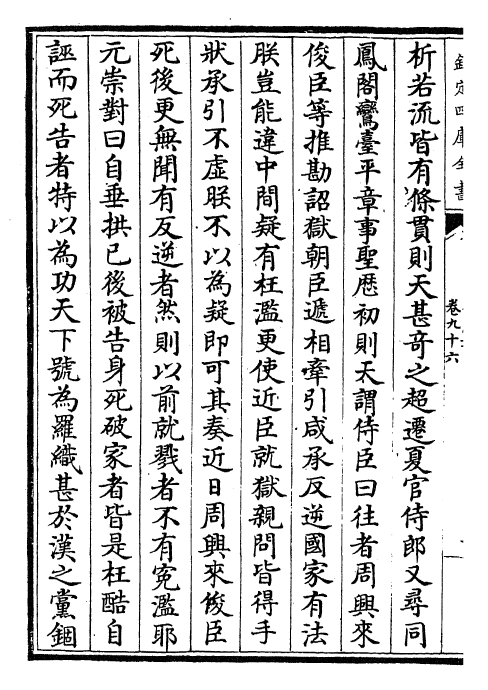 欽定四庫全書
卷九十六
析若流皆有條貫則天甚奇之超遷夏官侍郎又尋同
鳳閣鸞臺平章事聖歴初則天謂侍臣曰往者周興來
俊臣等推勘詔獄朝臣遞相牽引咸承反逆國家有法
朕豈能違中間疑有枉濫更使近臣就獄親問皆得手
狀承引不虛朕不以為疑即可其奏近日周興來俊臣
死後更無聞有反逆者然則以前就戮者不有寃濫耶
元崇對曰自垂拱已後被告身死破家者皆是枉酷自
誣而死告者特以為功天下號為羅織甚於漢之黨錮